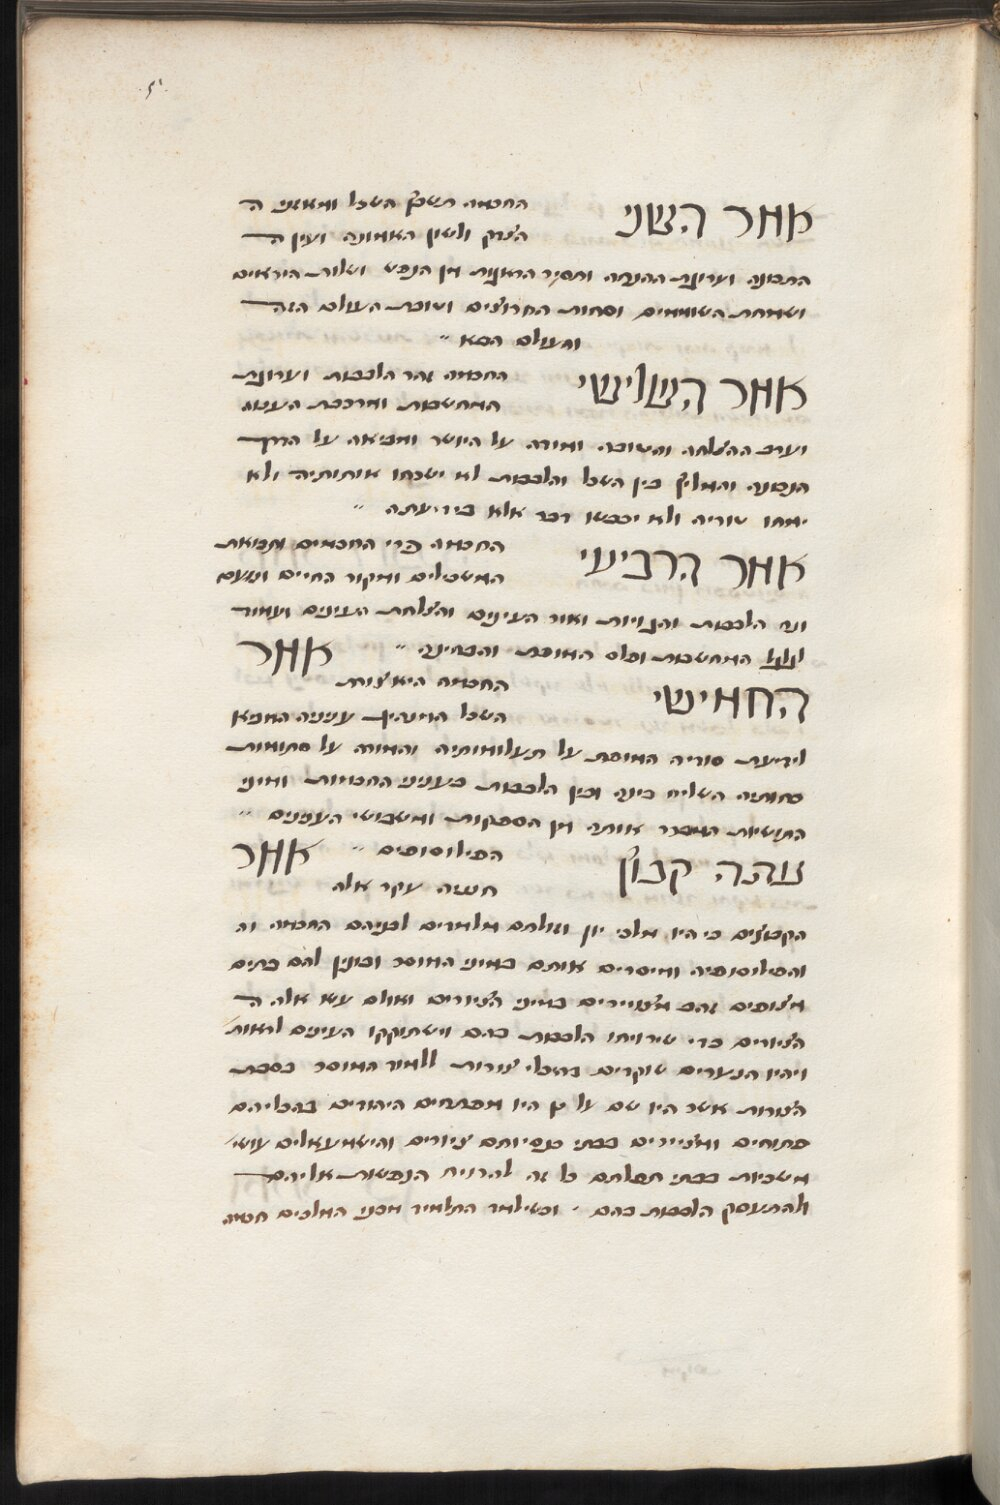 אמר השני
החכמה תשפיע השכל ומאזני ה
הצדק ולשון האמונה ועין ה
התבונה וערוגת ההנהגה ותסיר הדאגות מן הנפש ושלות היראים
ושמחת השוממים וסחות החרוצים וטובת העולם הזה
והעולם הבא
אמר השלישי
החכמה זהר הלבבות וערוגת
המחשבות ומרכבת העצה
וערב ההצלחה והטובה ומורה על היושר ומביאה על הדרך
הנכונה והמליץ בין השכל והלבבות לא ישכחו אותותיה ולא
ימחו טוריה ולא יכבשו דבר אלא בידיעתה
אמר הרביעי
החכמה פרי החכמים ותבואת
המשכילים ומקור החיים ונועם
ונר הלבבות והגויות ואור העינים והצלחת הענינים ועמוד
המחשבות ופלס המוסר והבחינה
אמר
החמישי
החכמה היא צורת
השכל המנהיג ענינה המביא
לידיעת סודיה המוסר על תעלומותיה והמורה על סתומות
השליח בינה ובין הלבבות בעניני החכמות ומיני
התושיות המברר אותה מן הספקות ומשבושי הענינים
נוהה קבוץ
הפילוסופים
אמר
חנניה עקר אלה
הקבוצים כי היו מלכי יון וזולתם מלמדים לבניהם החכמה וה
והפילוסופיא ומיסרים אותם במיני המוסר ובונין להם בתים
מצופים זהב מצויירים במיני הציורים ואולם עשו אלה ה
הציורים כדי שירויחו הלבבות בהם וישתוקקו העינים לראות
ויהיו הנערים שוקדים בהיכלי צורות ללמוד המוסר בסבת
הצורות אשר היו שם על כן היו מפתחים היהודים בהיכליהם
פתוחים ומציירים בבתי כנסיותם ציורים והישמעאלים עושי
משכיות בבתי תפלתם כל זה להרויח הנפשות אליהם
ולהתעסק הלבבות בהם וכשילמד התלמיד מבני המלכים חכמה